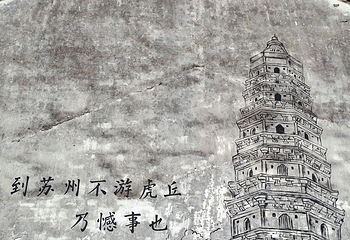 到苏州不游虎丘
乃憾事也